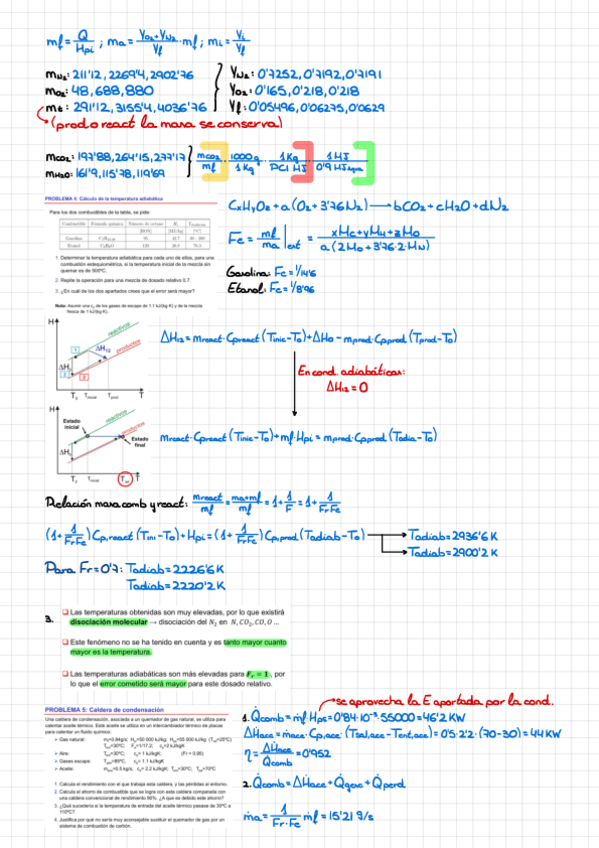 mf = Q/Hpi ; ma = (YO2+YN2)/Yf · mf ; mi = Yi/Yf
mN2: 211'12, 2269'4, 2902'76
mO2: 48, 688, 880
mt: 291'12, 3155'4, 4036'76
YN2: 0'7252, 0'7192, 0'7191
YO2: 0'165, 0'218, 0'218
Yf: 0'05496, 0'06275, 0'0629
(prod o react la masa se conserva)
mCO2: 197'88, 264'15, 277'17
mH2O: 161'9, 115'78, 119'69
mCO2/mf · 1000g/1Kg · 1Kg/PCI MJ · 1MJ/0'9 MJagua
PROBLEMA 4: Cálculo de la temperatura adiabática
Para los dos combustibles de la tabla, se pide:
1. Determinar la temperatura adiabática para cada uno de ellos, para una combustión estequiométrica, si la temperatura inicial de la mezcla sin quemar es de 500ºC.
2. Repite la operación para una mezcla de dosado relativo 0.7.
3. ¿En cuál de los dos apartados crees que el error será mayor?
Nota: Asumir una cp de los gases de escape de 1.1 kJ/(kg·K) y de la mezcla fresca de 1 kJ/(kg·K).
CxHyOz + a(O2 + 3'76N2) → bCO2 + cH2O + dN2
Fe = mf/ma|est = (xMc + yMH + zMo)/(a(2Mo + 3'76·2·MN))
Gasolina: Fe = 1/14'6
Etanol: Fe = 1/8'96
H
reactivos
productos
ΔH12
ΔHo
1
2
T
ΔH12 = mreact·Cpreact(Tinic-To) + ΔHo - mprod·Cpprod(Tprod-To)
En cond. adiabáticas:
ΔH12 = 0
H
Estado inicial
reactivos
productos
Estado final
ΔHo
Tad
T
mreact·Cpreact(Tinic-To) + mf·Hpi = mprod·Cpprod(Tadia-To)
Relación masa comb y react: mreact/mf = (ma+mf)/mf = 1 + 1/F = 1 + 1/FrFe
(1 + 1/FrFe)Cp,react(Tini-To) + Hpi = (1 + 1/FrFe)Cp,prod(Tadiab-To)
Tadiab = 2936'6 K
Tadiab = 2900'2 K
Para Fr = 0'7: Tadiab = 2226'6K
Tadiab = 2220'2K
3.
Las temperaturas obtenidas son muy elevadas, por lo que existirá
disociación molecular → disociación del N2 en N, CO2, CO, O ...
Este fenómeno no se ha tenido en cuenta y es tanto mayor cuanto
mayor es la temperatura.
Las temperaturas adiabáticas son más elevadas para Fr = 1, por
lo que el error cometido será mayor para este dosado relativo.
PROBLEMA 5: Caldera de condensación
Una caldera de condensación, asociada a un quemador de gas natural, se utiliza para calentar aceite térmico. Este aceite se utiliza en un intercambiador térmico de placas para calentar un fluido químico.
1. Calcula el rendimiento con el que trabaja esta caldera, y las pérdidas al entorno.
2. Calcula el ahorro de combustible que se logra con esta caldera comparada con una caldera convencional de rendimiento 90%. ¿A que es debido este ahorro?
3. ¿Qué sucedería si la temperatura de entrada del aceite térmico pasase de 30ºC a 110ºC?
4. Justifica por qué no sería muy aconsejable sustituir el quemador de gas por un sistema de combustión de carbón.
se aprovecha la E aportada por la cond.
1. Q̇comb = ṁf·Hps = 0'84·10⁻³·55000 = 46'2 KW
ΔḢace = ṁace·Cp,ace(Tsal,ace - Tent,ace) = 0'5·2'2·(70-30) = 44KW
η = ΔḢace/Q̇comb = 0'952
2. Q̇comb = ΔḢace + Q̇gesc + Q̇perd
ṁa = 1/(Fr·Fe) ṁf = 15'21 g/s